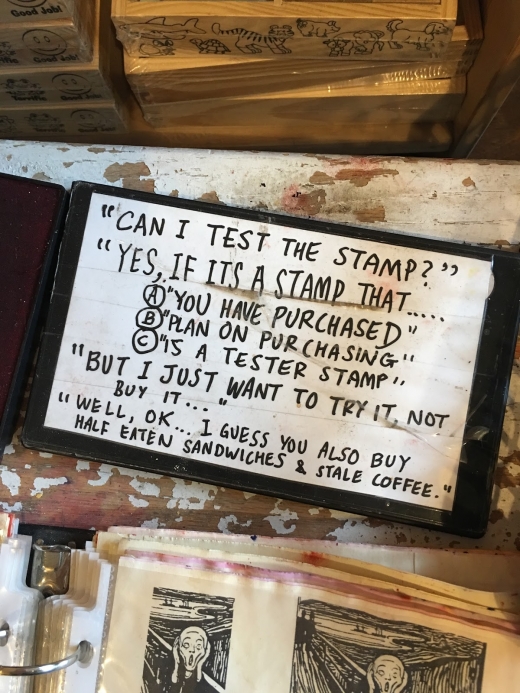 Good Job!
Terrific
Good Job!
"CAN I TEST THE STAMP?"
"YES, IF ITS A STAMP THAT.....
Ⓐ "YOU HAVE PURCHASED"
Ⓑ "PLAN ON PURCHASING"
Ⓒ "IS A TESTER STAMP"
"BUT I JUST WANT TO TRY IT, NOT
BUY IT... "
"WELL, OK... I GUESS YOU ALSO BUY
HALF EATEN SANDWICHES & STALE COFFEE."